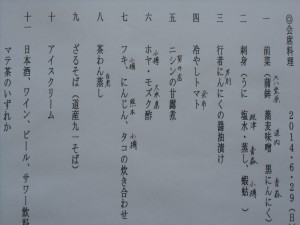 ◎会席料理　２０１４・６・２９（日
一　前菜（蒲鉾　蕎麦味噌　黒にんにく）
道内　青森
二　刺身（うに　塩水・蒸し、蝦蛄　）
青森　小樽
三　行者にんにくの醤油漬け
四　冷やしトマト
五　ニシンの甘露煮
六　ホヤ・モズク酢
小樽
七　フキ、にんじん、タコの炊き合わせ
小樽　熊本　小樽
八　茶わん蒸し
九　ざるそば（道産九一そば）
十　アイスクリーム
十一　日本酒、ワイン、ビール、サワー飲料
マテ茶のいずれか